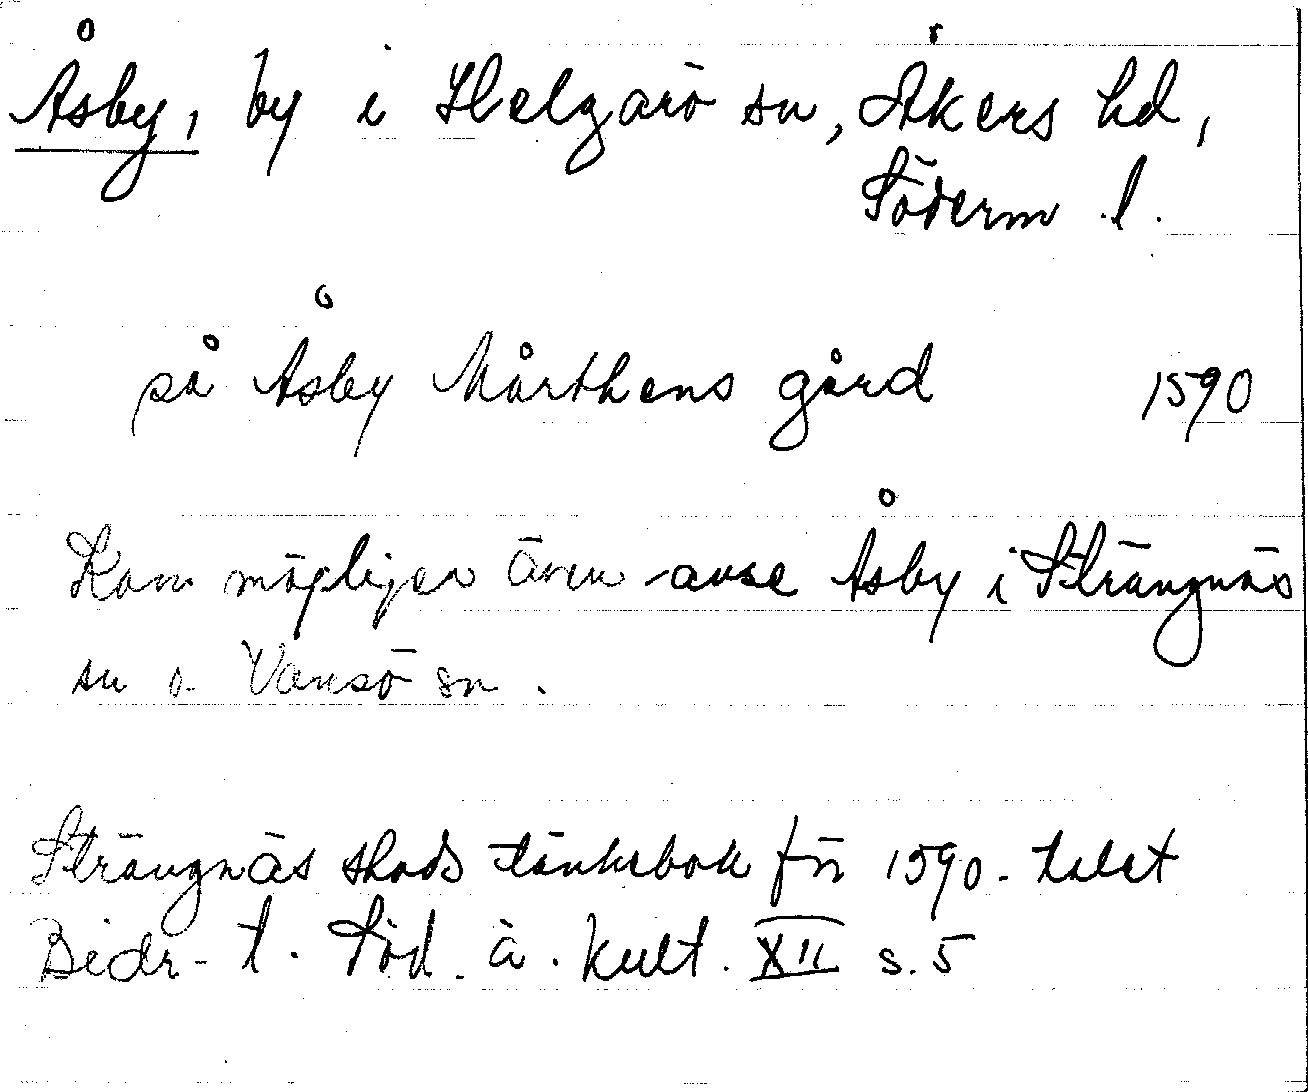 Åsby, by i Helgarö sn, Åkers hd,
Söderm. l.
på Åsby Mårthens gård 1590
Kan möjligen även avse Åsby i Strängnäs
sn o. Vansö sn.
Strängnäs stads tänkebok för 1590-talet
Bidr. t. Söd. ä. kult. XII s. 5